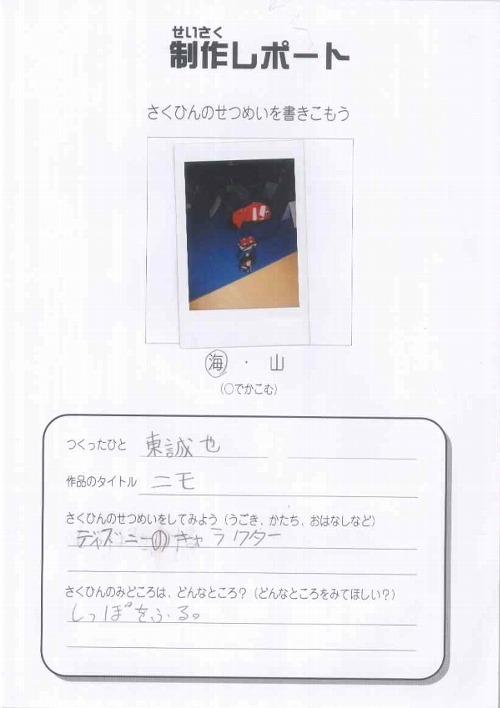 せいさく
制作レポート
さくひんのせつめいを書きこもう
海・山
(○でかこむ)
つくったひと 東誠也
作品のタイトル ニモ
さくひんのせつめいをしてみよう(うごき、かたち、おはなしなど)
ディズニーのキャラクター
さくひんのみどころは、どんなところ?(どんなところをみてほしい?)
しっぽをふる。